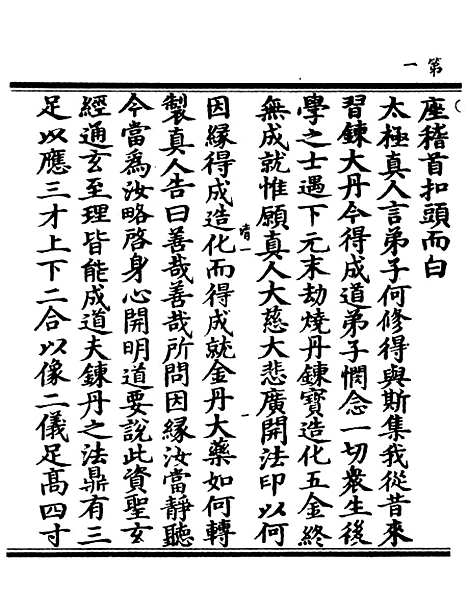 第一
座稽首扣頭而白
太極真人言弟子何修得與斯集我從昔來
習鍊大丹今得成道弟子憫念一切衆生後
學之士遇下元末劫燒丹鍊寳造化五金終
無成就惟願真人大慈大悲廣開法印以何
因縁得成造化而得成就金丹大藥如何轉
製真人告曰善哉善哉所問因縁汝當靜聽
今當爲汝略啓身心開明道要說此資聖玄
經通玄至理皆能成道夫鍊丹之法鼎有三
足以應三才上下二合以像二儀足髙四寸